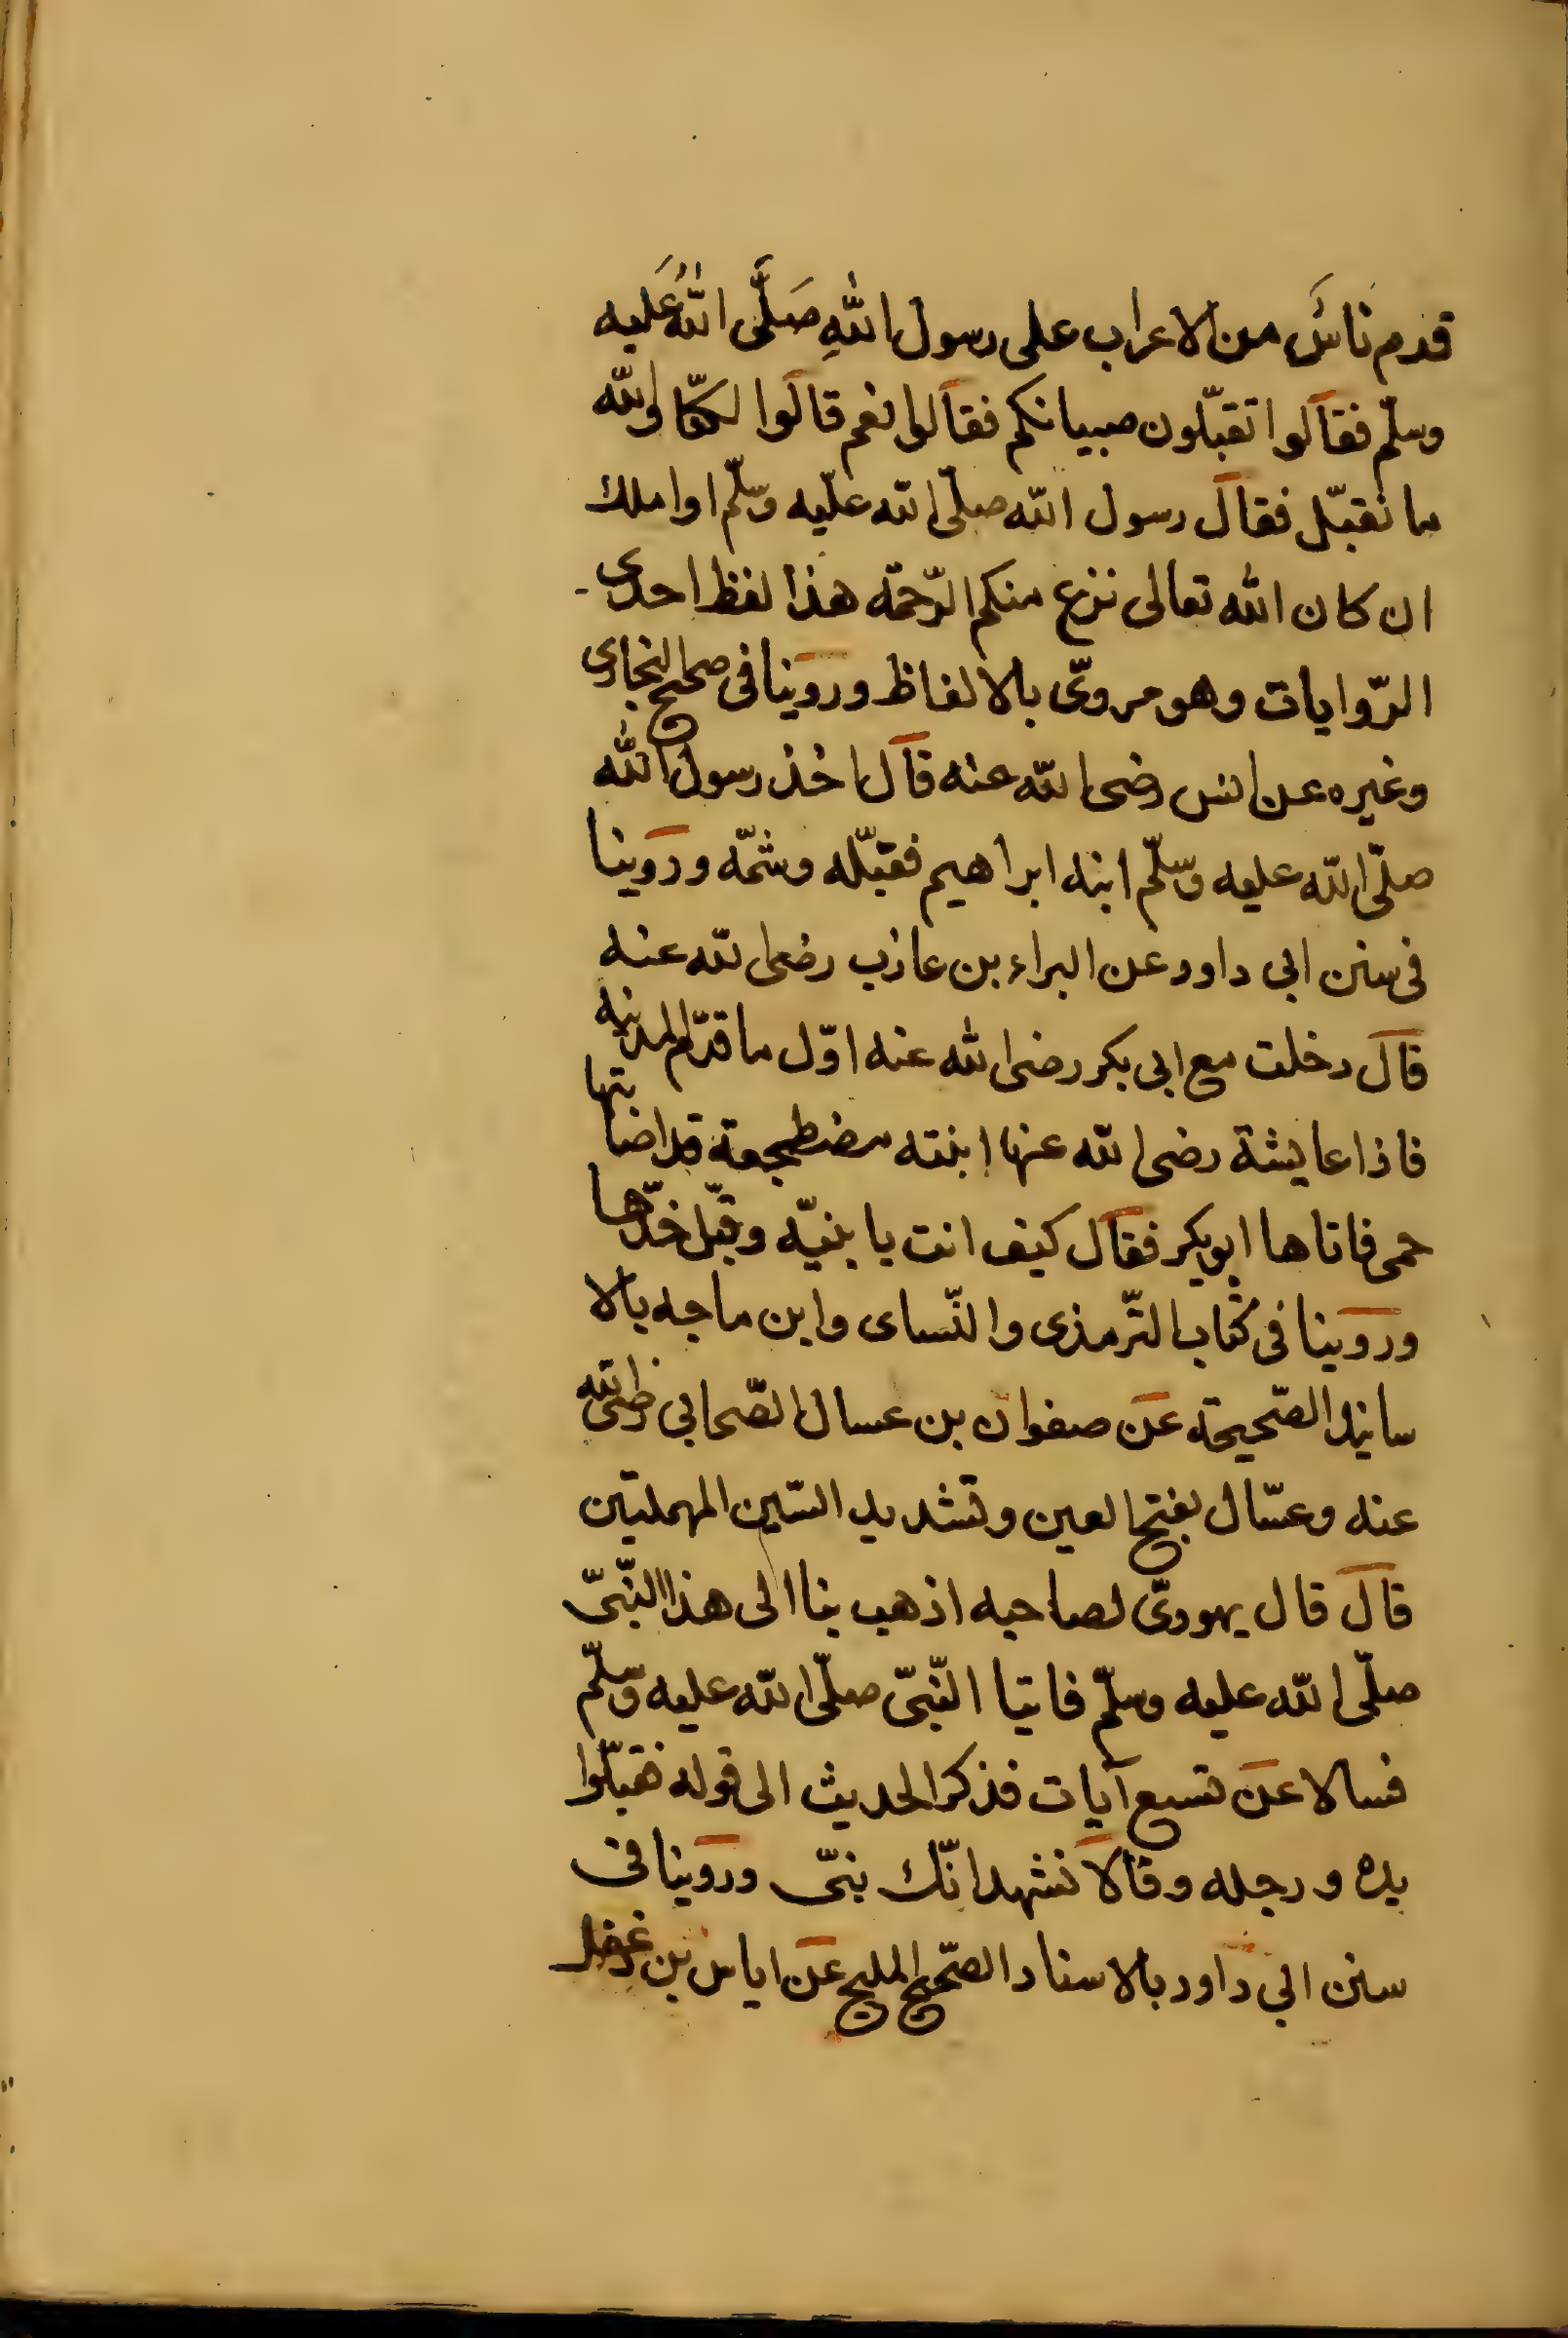 قدم ناس من الاعراب على رسول اللهِ صَلَّى اللهُ عَليه
وسلّم فقالوا تقبّلون صبيانكم فقالوا نعم قالوا لكنّا والله
ما نقبّل فقال رسول الله صلّى الله عليه وسلّم اواملك
ان كان الله تعالى نزع منكم الرّحمة هذا لفظ احدى
الرّوايات وهو مروىّ بالالفاظ وروينا فى صحيح البخارى
وغيره عن انس رضى الله عنه قال اخذ رسول الله
صلّى الله عليه وسلّم ابنه ابراهيم فقبّله وشمّه وروينا
فى سنن ابى داود عن البراء بن عازب رضى الله عنه
قال دخلت مع ابى بكر رضى الله عنه اوّل ما قدّم المدينة
فاذا عايشة رضى الله عنها ابنته مضطجعة قد اصابتها
حمى فاتاها ابوبكر فقال كيف انت يا بنيّه وقبّل خدّها
وروينا فى كتاب الترّمذى والنّساى وابن ماجه بالا
سانيد الصّحيحة عن صفوان بن عسال الصّحابى رضى الله
عنه وعسّال بفتح العين وتشديد السّين المهملتين
قال قال يهودىّ لصاحبه اذهب بنا الى هذا النّبىّ
صلّى الله عليه وسلّم فاتيا النّبىّ صلّى الله عليه وسلّم
فسالا عن تسع آيات فذكر الحديث الى قوله فقبّلوا
يده ورجله وقالا نشهد انّك نبىّ وروينا فى
سنن ابى داود بالاسناد الصّحيح المليح عن اياس بن